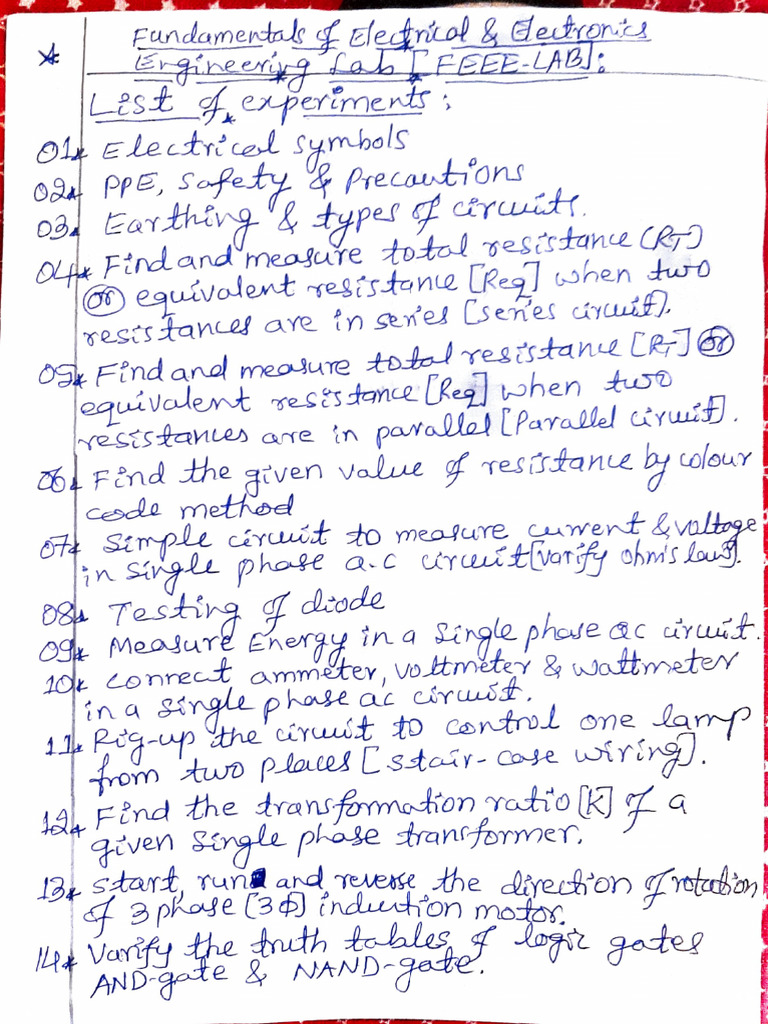 Fundamentals of Electrical & Electronics
* Engineering Lab [FEEE-LAB]:
List of experiments:
01* Electrical symbols
02* PPE, Safety & Precautions
03* Earthing & types of circuits.
04* Find and measure total resistance (RT)
(or) equivalent resistance [Req] when two
resistances are in series [series circuit].
05* Find and measure total resistance [RT] (or)
equivalent resistance [Req] when two
resistances are in parallel [Parallel circuit].
06* Find the given value of resistance by colour
code method
07* Simple circuit to measure current & voltage
in single phase a.c circuit [varify ohm's law].
08* Testing of diode
09* Measure Energy in a single phase ac circuit.
10* connect ammeter, voltmeter & wattmeter
in a single phase ac circuit.
11* Rig-up the circuit to control one lamp
from two places [stair-case wiring].
12* Find the transformation ratio [K] of a
given single phase transformer.
13* start, run and reverse the direction of rotation
of 3 phase [3ϕ] induction motor.
14* Varify the truth tables of logic gates
AND-gate & NAND-gate.